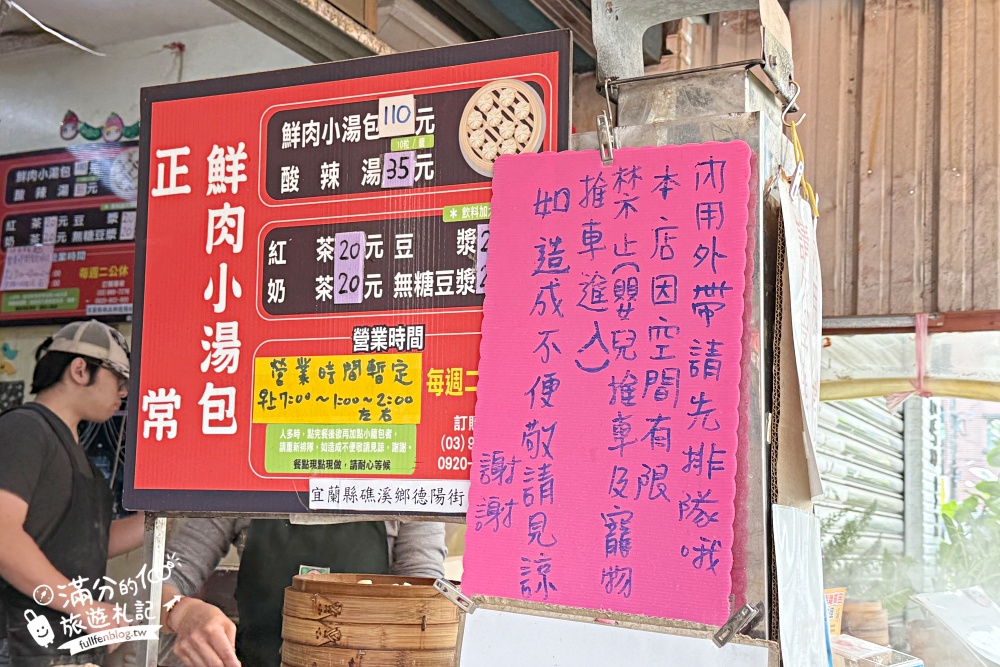 正常
鮮肉小湯包
鮮肉小湯包110元
10粒/籠
酸辣湯35元
＊飲料加
紅茶20元 豆漿2
奶茶20元 無糖豆漿2
營業時間
營業時間暫定
早上7:00~1:00~2:00
左右
每週
人多時，點完餐後欲再加點小籠包者，
請重新排隊，如造成不便敬請見諒。謝謝。
餐點現點現做，請耐心等候
訂購
(03)9
0920-
宜蘭縣礁溪鄉德陽街
內用外帶請先排隊哦
本店因空間有限
禁止(嬰兒推車及寵物
推車進入)
如造成不便敬請見諒
謝謝
鮮肉小湯包
酸辣湯
紅茶 元 豆漿
奶茶 元 無糖豆漿
業時間
每週二公休
滿分的
旅遊札記
fullfenblog.tw